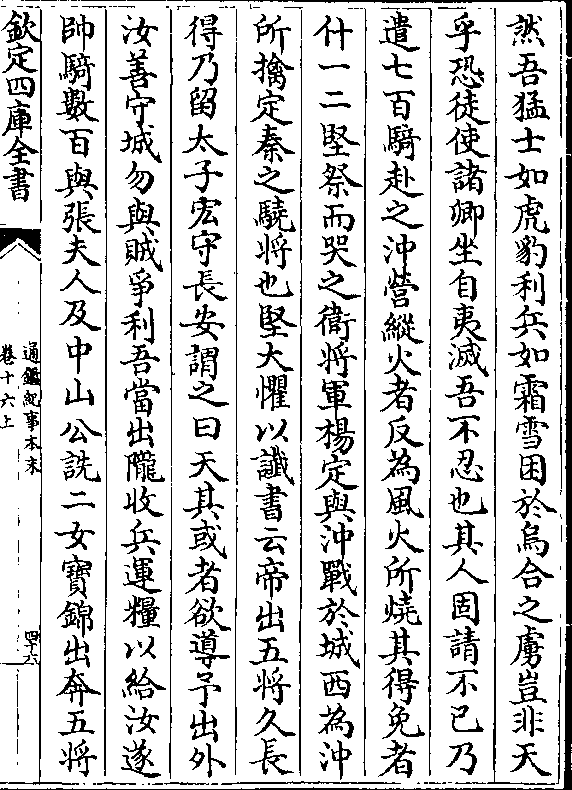 然吾猛士如虎豹利兵如霜雪困於烏合之虜豈非天
乎恐徒使諸卿坐自夷滅吾不忍也其人固請不已乃
遣七百騎赴之沖營縱火者反為風火所燒其得免者
什一二堅祭而哭之衛將軍楊定與沖戰於城西為沖
所擒定秦之驍將也堅大懼以讖書云帝出五將久長
得乃留太子宏守長安謂之曰天其或者欲導予出外
汝善守城勿與賊爭利吾當出隴收兵運糧以給汝遂
帥騎數百與張夫人及中山公詵二女寶錦出奔五將
欽定四庫全書
通鑑紀事本末
卷十六上
四十六